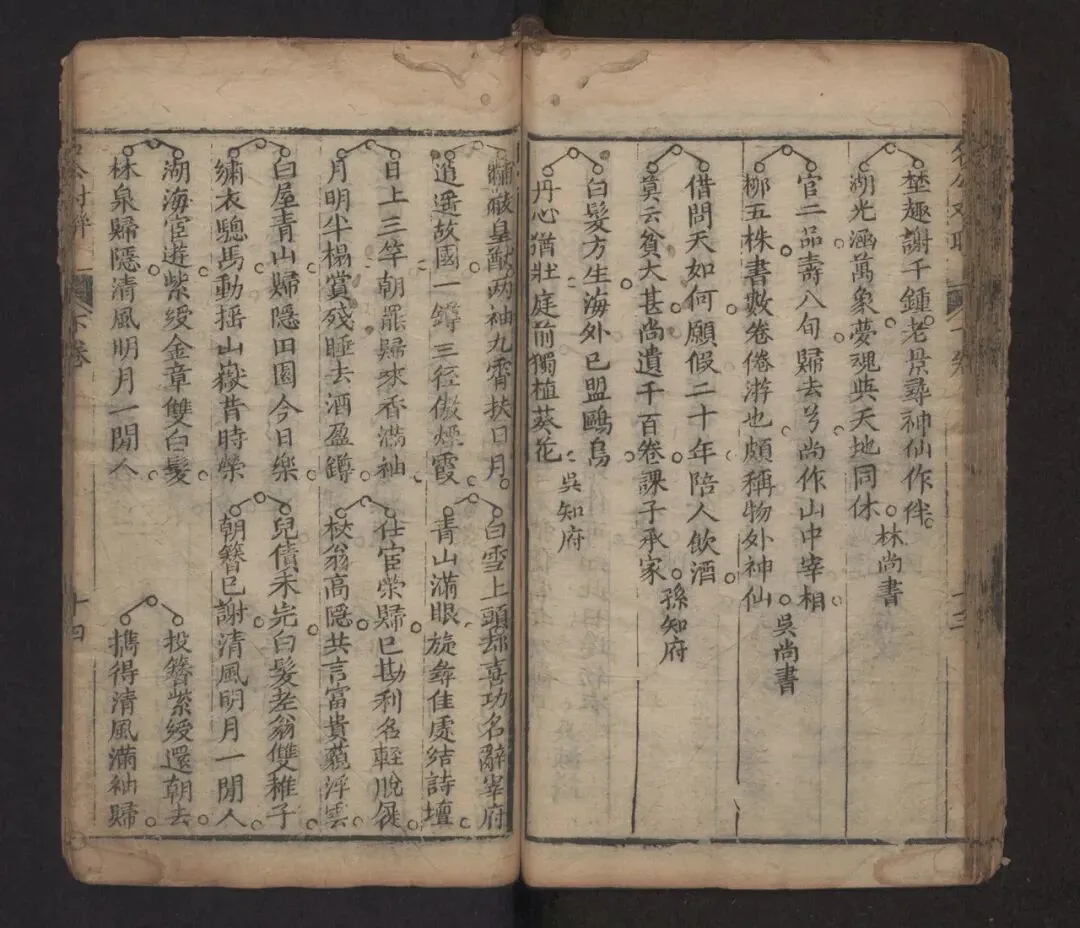 埜趣謝千鍾老景尋神仙作伴
湖光涵萬象夢魂與天地同休
林尚書
官二品壽八旬歸去兮尚作山中宰相
柳五株書數卷倦游也頗稱物外神仙
吳尚書
借問天如何願假二十年陪人飲酒
莫云貧大甚尚遺千百卷課子承家
孫知府
白髮方生海外已盟鷗鳥
丹心猶壯庭前獨植葵花
吳知府
黼黻皇猷两袖九霄扶日月
逍遙故國一鐏三徑傲煙霞
日上三竿朝罷歸來香滿袖
月明半榻賞殘睡去酒盈鐏
白屋青山歸隱田園今日樂
繡衣驄馬動搖山嶽昔時榮
湖海宦遊紫綬金章雙白髮
林泉歸隱清風明月一閒人
白雪上頭却喜功名辭宰府
青山滿眼旋尋佳處結詩壇
仕宦榮歸已勘利名輕脫屣
杖翁高隱共言富貴藐浮雲
兒債未完白髮老翁雙稚子
朝簪已謝清風明月一閒人
投簪紫綬還朝去
攜得清風滿袖歸
下卷
十四